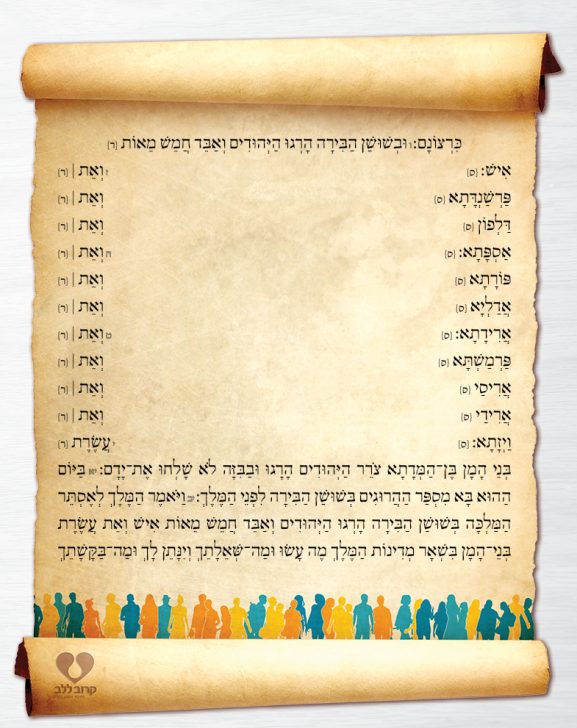 כִּרְצוֹנָם: ו וּבְשׁוּשַׁן הַבִּירָה הָרְגוּ הַיְּהוּדִים וְאַבֵּד חֲמֵשׁ מֵאוֹת {ר}
אִישׁ: {ס} ז וְאֵת | {ר}
פַּרְשַׁנְדָּתָא {ס} וְאֵת | {ר}
דַּלְפוֹן {ס} וְאֵת | {ר}
אַסְפָּתָא: {ס} ח וְאֵת | {ר}
פּוֹרָתָא {ס} וְאֵת | {ר}
אֲדַלְיָא {ס} וְאֵת | {ר}
אֲרִידָתָא: {ס} ט וְאֵת | {ר}
פַּרְמַשְׁתָּא {ס} וְאֵת | {ר}
אֲרִיסַי {ס} וְאֵת | {ר}
אֲרִידַי {ס} וְאֵת | {ר}
וַיְזָתָא: {ס} י עֲשֶׂרֶת {ר}
בְּנֵי הָמָן בֶּן־הַמְּדָתָא צֹרֵר הַיְּהוּדִים הָרָגוּ וּבַבִּזָּה לֹא שָׁלְחוּ אֶת־יָדָם: יא בַּיּוֹם
הַהוּא בָּא מִסְפַּר הַהֲרוּגִים בְּשׁוּשַׁן הַבִּירָה לִפְנֵי הַמֶּלֶךְ: יב וַיֹּאמֶר הַמֶּלֶךְ לְאֶסְתֵּר
הַמַּלְכָּה בְּשׁוּשַׁן הַבִּירָה הָרְגוּ הַיְּהוּדִים וְאַבֵּד חֲמֵשׁ מֵאוֹת אִישׁ וְאֵת עֲשֶׂרֶת
בְּנֵי־הָמָן בִּשְׁאָר מְדִינוֹת הַמֶּלֶךְ מֶה עָשׂוּ וּמַה־שְּׁאֵלָתֵךְ וְיִנָּתֵן לָךְ וּמַה־בַּקָּשָׁתֵךְ
קרוב ללב